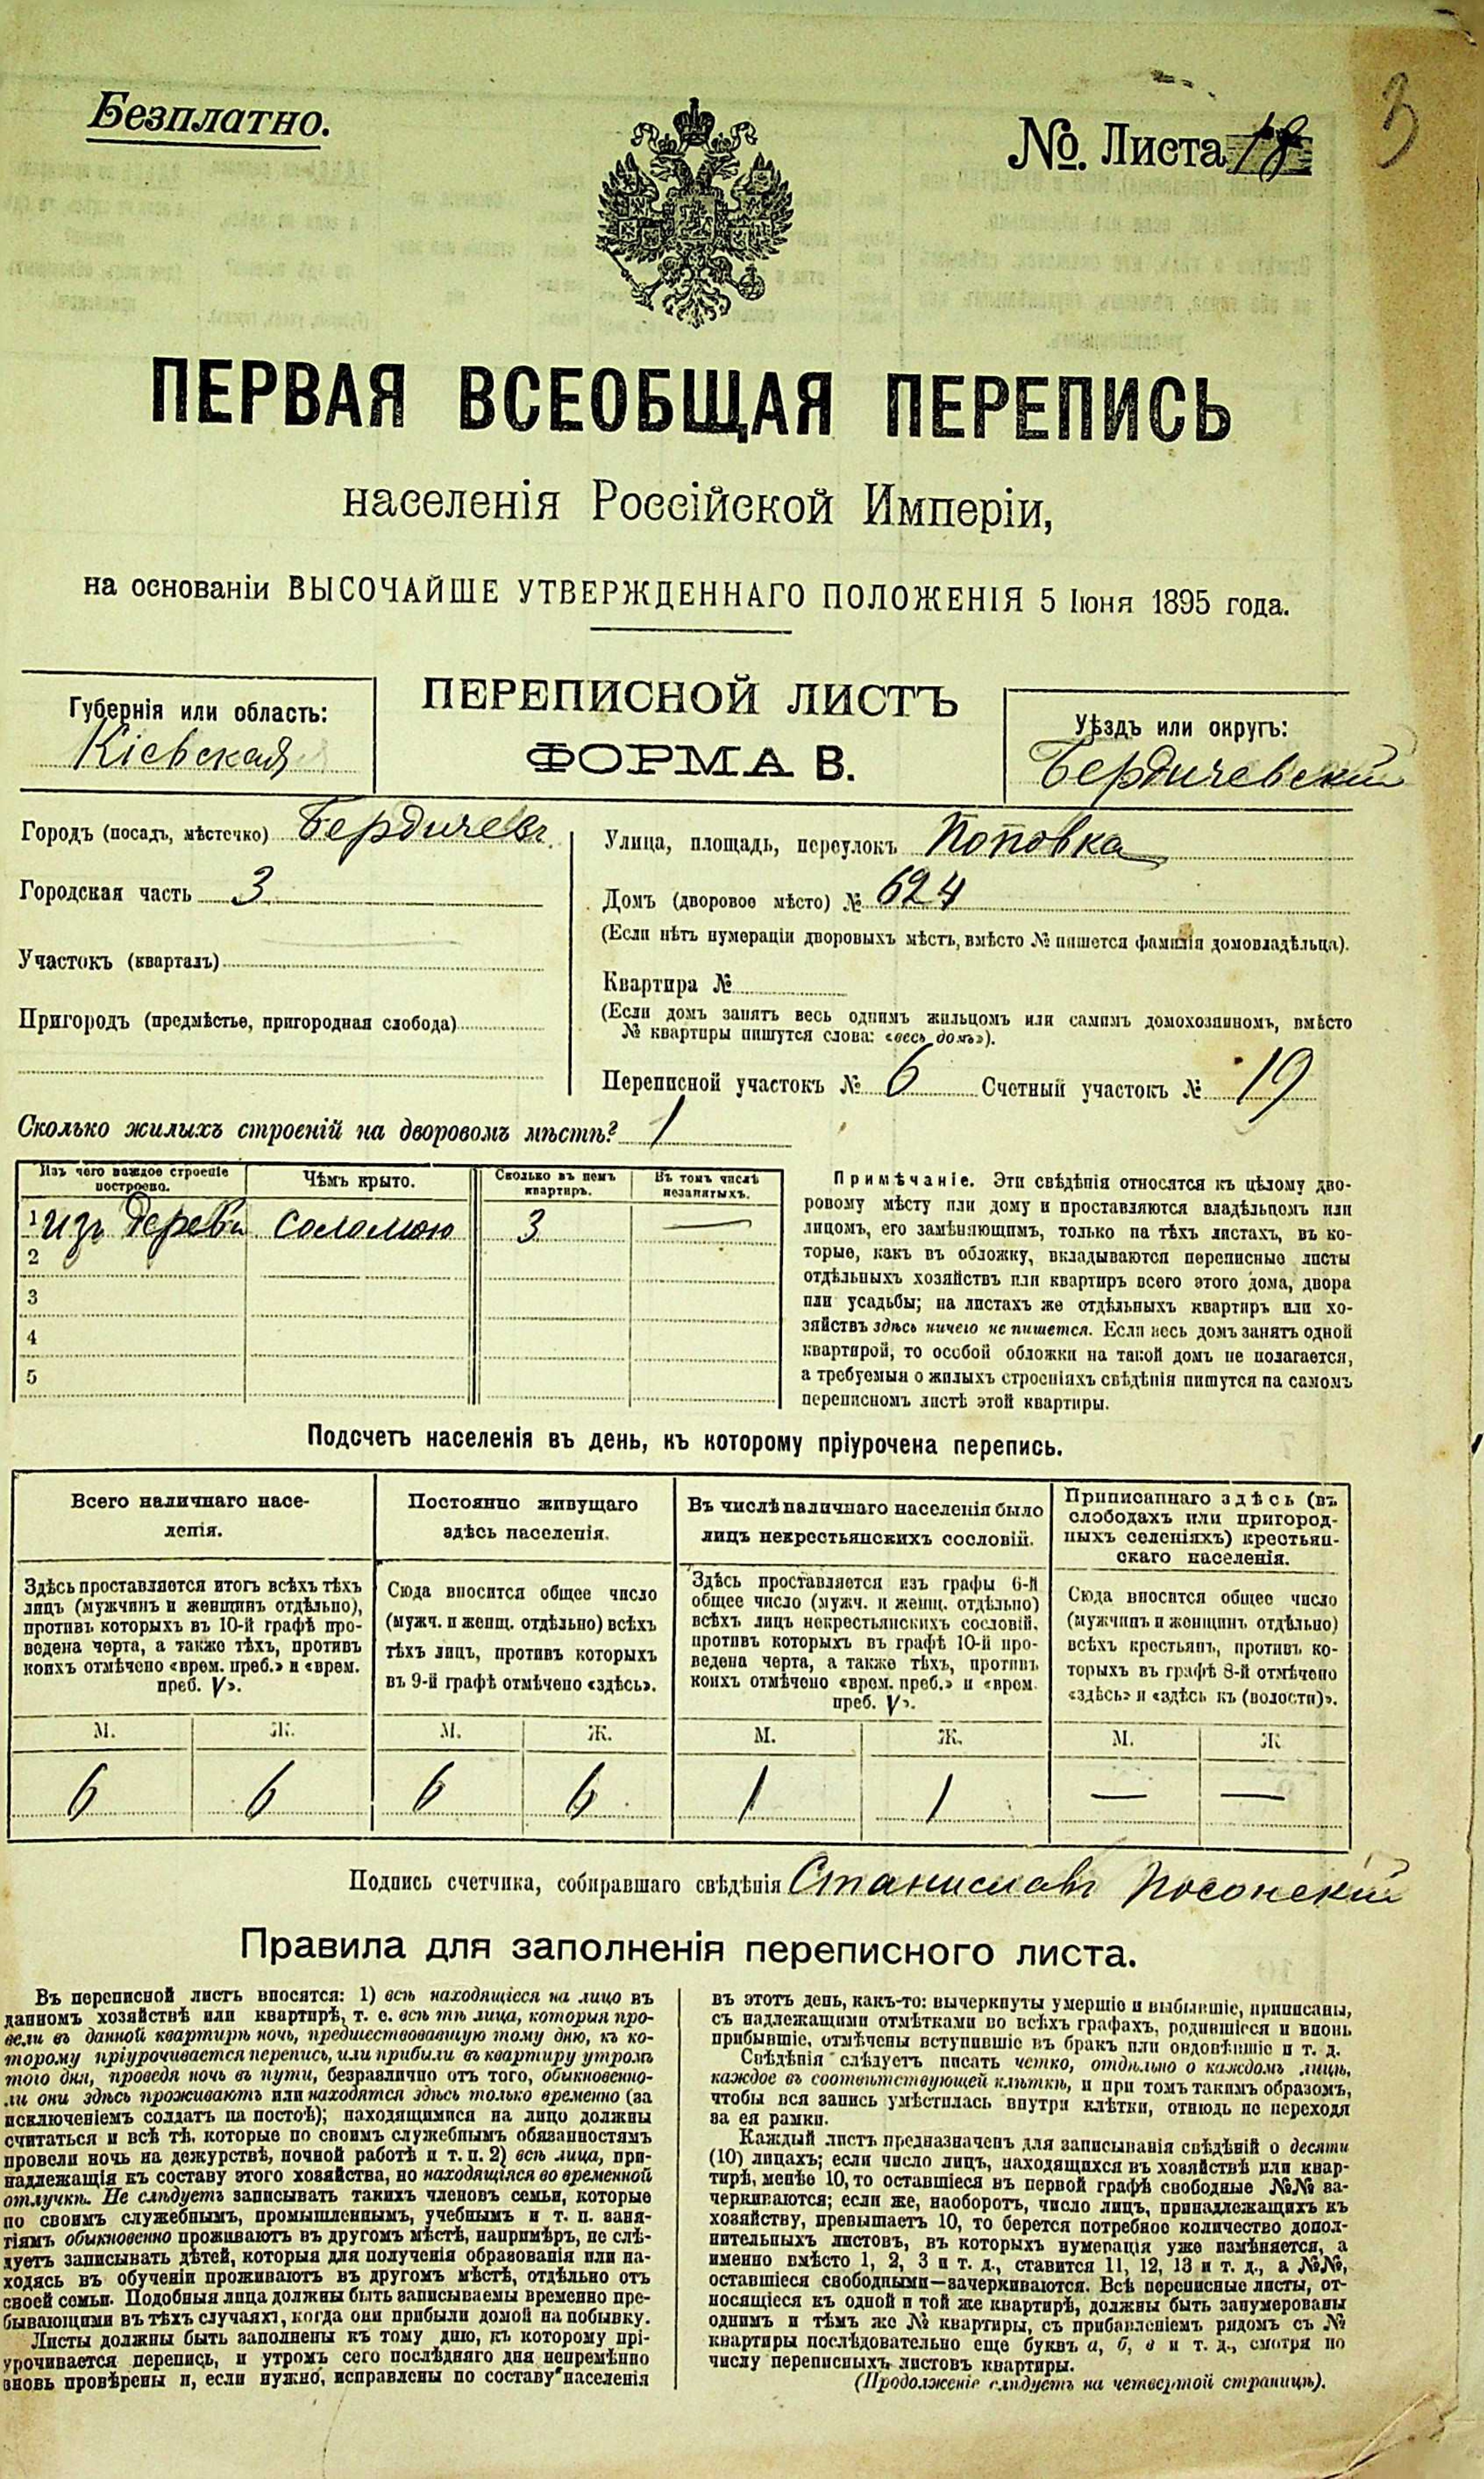 Безплатно.
№. Листа 18
3
ПЕРВАЯ ВСЕОБЩАЯ ПЕРЕПИСЬ
населенія Россійской Имперіи,
на основаніи ВЫСОЧАЙШЕ УТВЕРЖДЕННАГО ПОЛОЖЕНІЯ 5 Іюня 1895 года.
Губернія или область:
Кіевская
ПЕРЕПИСНОЙ ЛИСТЪ
ФОРМА В.
Уѣздъ или округъ:
Бердичевскій
Городъ (посадъ, мѣстечко) Бердичевъ
Городская часть 3
Участокъ (кварталъ)
Пригородъ (предмѣстье, пригородная слобода)
Улица, площадь, переулокъ Поповка
Домъ (дворовое мѣсто) № 624
(Если нѣтъ нумераціи дворовыхъ мѣстъ, вмѣсто № пишется фамилія домовладѣльца).
Квартира №
(Если домъ занятъ весь однимъ жильцомъ или самимъ домохозяиномъ, вмѣсто
№ квартиры пишутся слова: «весь домъ»).
Переписной участокъ № 6 Счетный участокъ № 19
Сколько жилыхъ строеній на дворовомъ мѣстѣ? 1
Изъ чего каждое строеніе
построено.
Чѣмъ крыто.
Сколько въ немъ
квартиръ.
Въ томъ числѣ
незанятыхъ.
1 изъ дерева соломою 3 —
2
3
4
5
Примѣчаніе. Эти свѣдѣнія относятся къ цѣлому дво-
ровому мѣсту или дому и проставляются владѣльцомъ или
лицомъ, его замѣняющимъ, только на тѣхъ листахъ, въ ко-
торые, какъ въ обложку, вкладываются переписные листы
отдѣльныхъ хозяйствъ или квартиръ всего этого дома, двора
или усадьбы; на листахъ же отдѣльныхъ квартиръ или хо-
зяйствъ здѣсь ничего не пишется. Если весь домъ занятъ одной
квартирой, то особой обложки на такой домъ не полагается,
а требуемыя о жилыхъ строеніяхъ свѣдѣнія пишутся на самомъ
переписномъ листѣ этой квартиры.
Подсчетъ населенія въ день, къ которому пріурочена перепись.
Всего наличнаго насе-
ленія.
Здѣсь проставляется итогъ всѣхъ тѣхъ
лицъ (мужчинъ и женщинъ отдѣльно),
противъ которыхъ въ 10-й графѣ про-
ведена черта, а также тѣхъ, противъ
коихъ отмѣчено «врем. преб.» и «врем.
преб. V».
Постоянно живущаго
здѣсь населенія.
Сюда вносится общее число
(мужч. и женщ. отдѣльно) всѣхъ
тѣхъ лицъ, противъ которыхъ
въ 9-й графѣ отмѣчено «здѣсь».
Въ числѣ наличнаго населенія было
лицъ некрестьянскихъ сословій.
Здѣсь проставляется изъ графы 6-й
общее число (мужч. и женщ. отдѣльно)
всѣхъ лицъ некрестьянскихъ сословій,
противъ которыхъ въ графѣ 10-й про-
ведена черта, а также тѣхъ, противъ
коихъ отмѣчено «врем. преб.» и «врем.
преб. V».
Приписаннаго здѣсь (въ
слободахъ или пригород-
ныхъ селеніяхъ) крестьян-
скаго населенія.
Сюда вносится общее число
(мужчинъ и женщинъ отдѣльно)
всѣхъ крестьянъ, противъ ко-
торыхъ въ графѣ 8-й отмѣчено
«здѣсь» и «здѣсь къ (волости)».
М. Ж. М. Ж. М. Ж. М. Ж
6 6 6 6 1 1 — —
Подпись счетчика, собиравшаго свѣдѣнія Станиславъ
Правила для заполненія переписного листа.
Въ переписной листъ вносятся: 1) всѣ находящіеся на лицо въ
данномъ хозяйствѣ или квартирѣ, т. е. всѣ тѣ лица, которыя про-
вели въ данной квартирѣ ночь, предшествовавшую тому дню, къ ко-
торому пріурочивается перепись, или прибыли въ квартиру утромъ
того дня, проведя ночь въ пути, безразлично отъ того, обыкновенно-
ли они здѣсь проживаютъ или находятся здѣсь только временно (за
исключеніемъ солдатъ на постоѣ); находящимися на лицо должны
считаться и всѣ тѣ, которые по своимъ служебнымъ обязанностямъ
провели ночь на дежурствѣ, ночной работѣ и т. п. 2) всѣ лица, при-
надлежащія къ составу этого хозяйства, но находящіяся во временной
отлучкѣ. Не слѣдуетъ записывать такихъ членовъ семьи, которые
по своимъ служебнымъ, промышленнымъ, учебнымъ и т. п. заня-
тіямъ обыкновенно проживаютъ въ другомъ мѣстѣ, напримѣръ, не слѣ-
дуетъ записывать дѣтей, которыя для полученія образованія или на-
ходясь въ обученіи проживаютъ въ другомъ мѣстѣ, отдѣльно отъ
своей семьи. Подобныя лица должны быть записываемы временно пре-
бывающими въ тѣхъ случаяхъ, когда они прибыли домой на побывку.
Листы должны быть заполнены къ тому дню, къ которому прі-
урочивается перепись, и утромъ сего послѣдняго дня непремѣнно
вновь провѣрены и, если нужно, исправлены по составу населенія
въ этотъ день, какъ-то: вычеркнуты умершіе и выбывшіе, приписаны,
съ надлежащими отмѣтками во всѣхъ графахъ, родившіеся и вновь
прибывшіе, отмѣчены вступившіе въ бракъ или овдовѣвшіе и т. д.
Свѣдѣнія слѣдуетъ писать четко, отдѣльно о каждомъ лицѣ,
каждое въ соотвѣтствующей клѣткѣ, и при томъ такимъ образомъ,
чтобы вся запись умѣстилась внутри клѣтки, отнюдь не переходя
за ея рамки.
Каждый листъ предназначенъ для записыванія свѣдѣній о десяти
(10) лицахъ; если число лицъ, находящихся въ хозяйствѣ или квар-
тирѣ, менѣе 10, то оставшіеся въ первой графѣ свободные №№ за-
черкиваются; если же, наоборотъ, число лицъ, принадлежащихъ къ
хозяйству, превышаетъ 10, то берется потребное количество допол-
нительныхъ листовъ, въ которыхъ нумерація уже измѣняется, а
именно вмѣсто 1, 2, 3 и т. д., ставится 11, 12, 13 и т. д., а №№,
оставшіеся свободными—зачеркиваются. Всѣ переписные листы, от-
носящіеся къ одной и той же квартирѣ, должны быть занумерованы
однимъ и тѣмъ же № квартиры, съ прибавленіемъ рядомъ съ №
квартиры послѣдовательно еще буквъ а, б, в и т. д., смотря по
числу переписныхъ листовъ квартиры.
(Продолженіе слѣдуетъ на четвертой страницѣ).